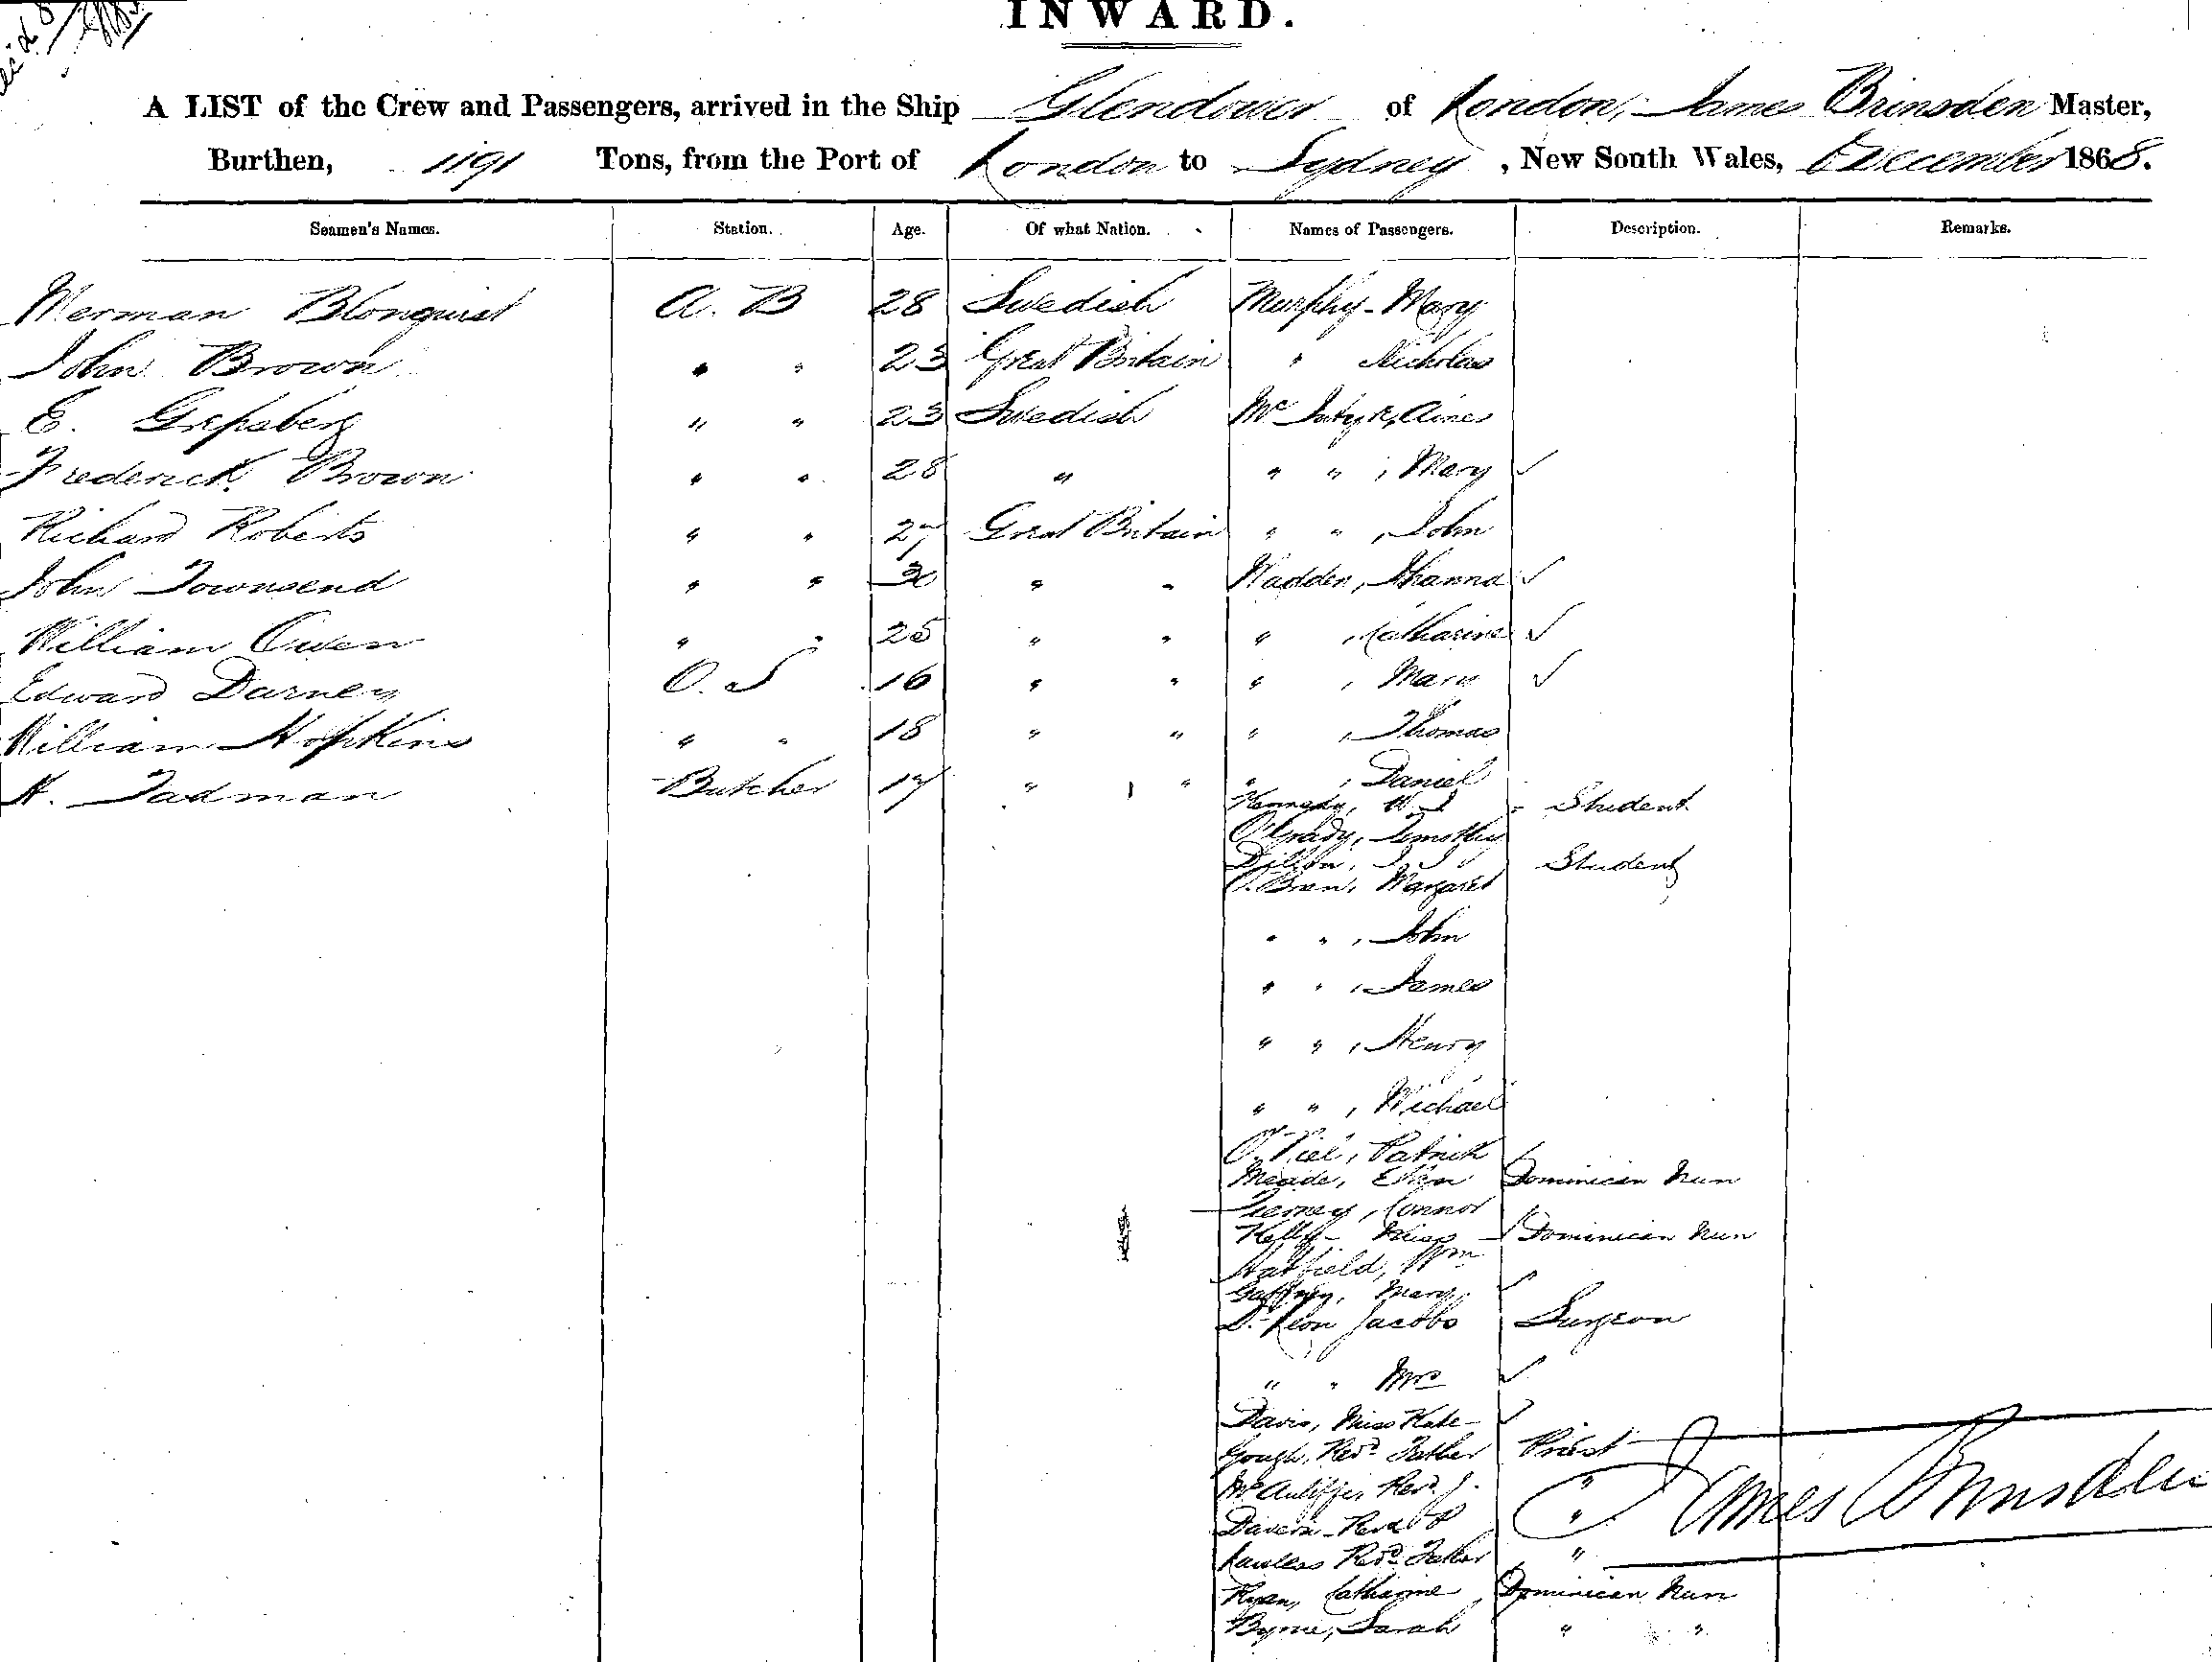 INWARD.
A LIST of the Crew and Passengers, arrived in the Ship Glendower of London, James Brinsden Master,
Burthen, 1191 Tons, from the Port of London to Sydney, New South Wales, December 1868.
Seamen's Names. Station. Age. Of what Nation. Names of Passengers. Description. Remarks.
Herman Blonquist A. B 28 Swedish Murphy - Mary
John Brown " " 23 Great Britain " Nicholas
E. " " 23 Swedish Mc Intyre,
Frederick Brown " " 28 " " " , Mary ✓
Richard Roberts " " 27 Great Britain " " , John
John Townsend " " 30 " " Hadden, Johanna ✓
William Owen " " 25 " " " , Catharine ✓
Edward Darney O. S 16 " " " , Mary ✓
William Hopkins " " 18 " " " , Thomas
H. Tadman Butcher 17 " " " , Daniel
Kennedy, W. J - Student
O'Grady, Timothy
Dillon, J. J Student
O.Brien, Margaret
" " , John
" " , James
" " , Henry
" " , Michael
O. Niel, Patrick
Meade, Ellen Dominican Nun
Tierney, Connor
Kelly - Miss Dominican Nun
Hatfield, Wm
Gaffney, Mary ✓
Dr Leon Jacobs Surgeon
" " Mrs ✓
Davis, Miss Kate - ✓
Gough, Revd Father Priest
McAuliffe, Revd J. "
Davern - Revd P "
James Brinsden
Lawless Revd Father "
Ryan, Catharine Dominican Nun
Byrne, Sarah " "